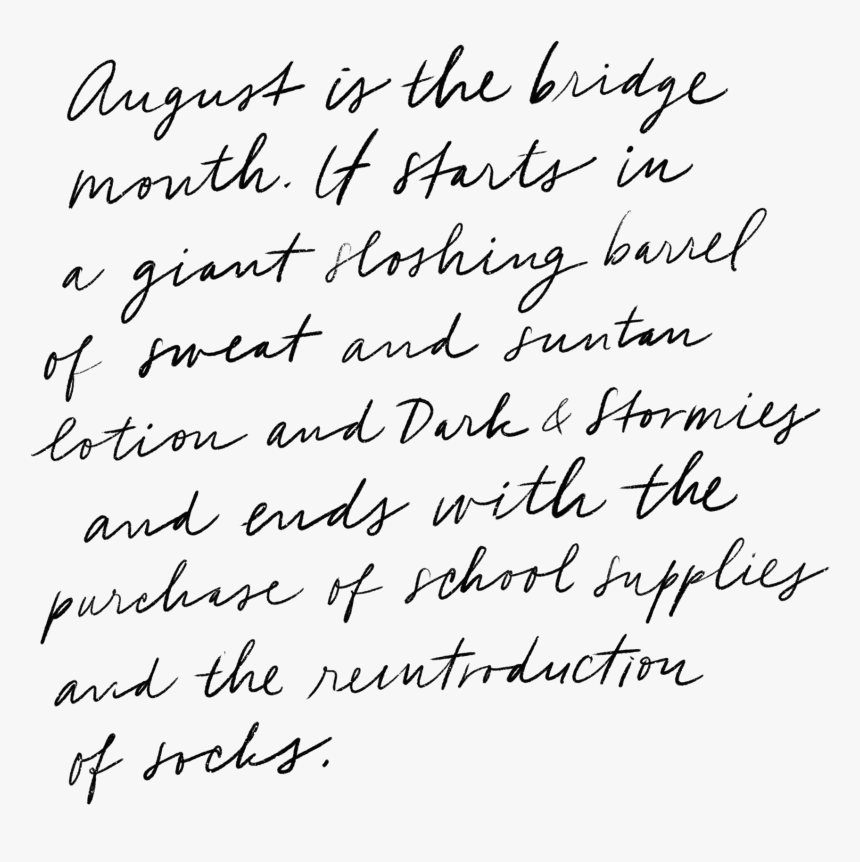 August is the bridge
month. It starts in
a giant sloshing barrel
of sweat and suntan
lotion and Dark & Stormies
and ends with the
purchase of school supplies
and the reintroduction
of socks.